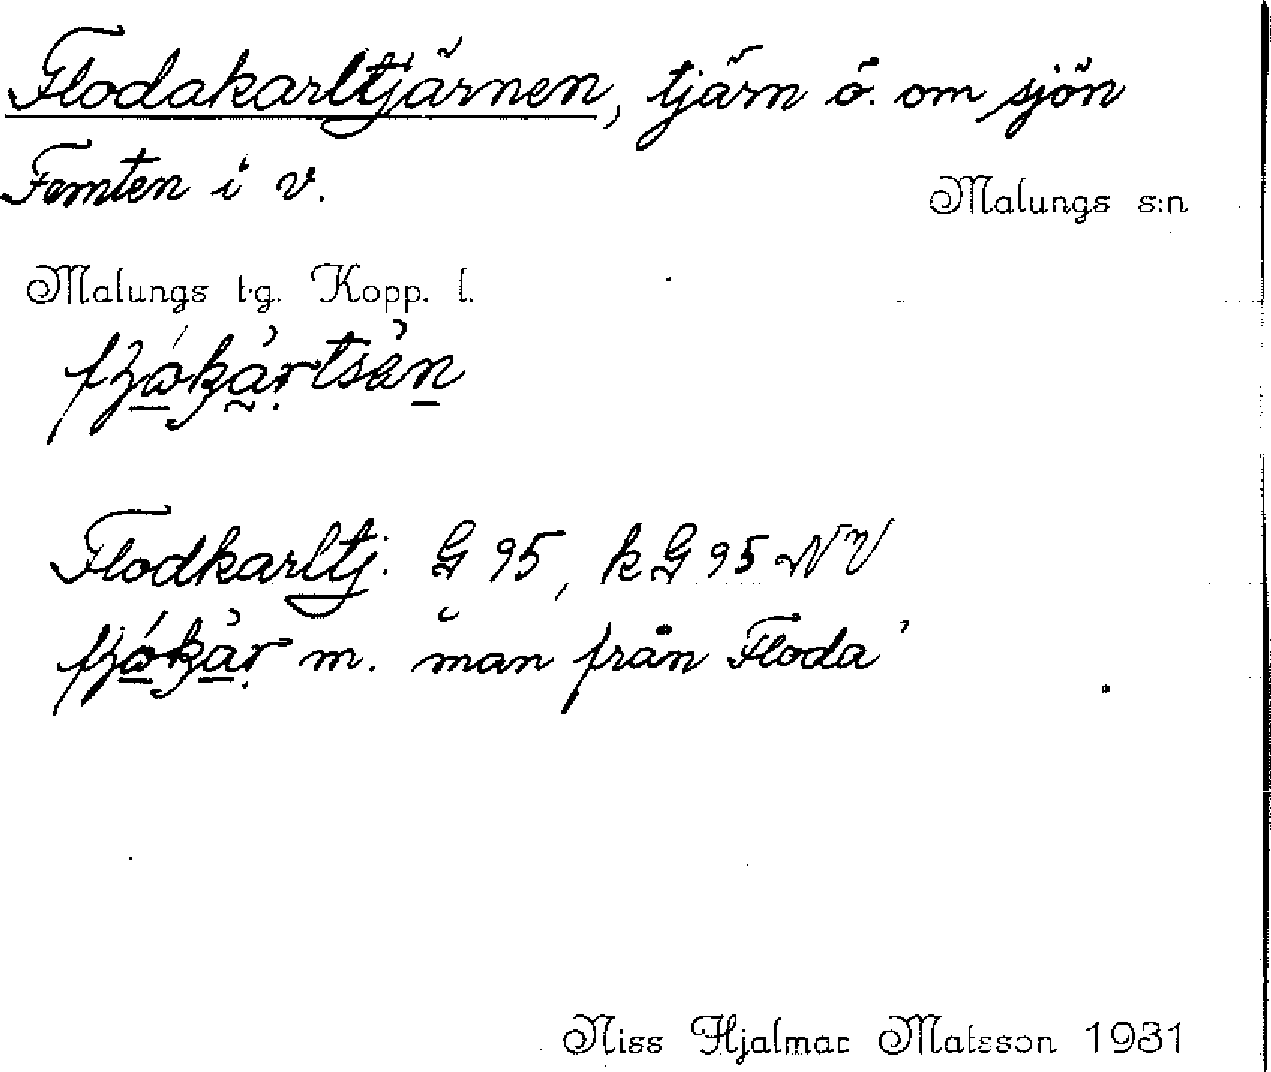 Flodakarltjärnen, tjärn ö. om sjön
Femten i v.
Malungs s:n
Malungs t.g. Kopp. l.
Flodkarltj. G 95, kG 95 NV
m. man från Floda'
Niss Hjalmar Matsson 1931